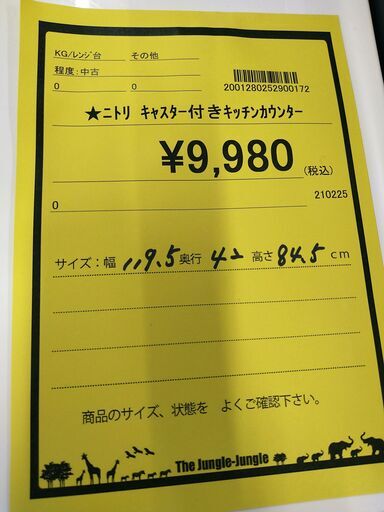 KG/ﾚﾝｼﾞ台 その他
程度:中古
0 0
2001280252900172
★ニトリ キャスター付きキッチンカウンター
¥9,980(税込)
0 210225
サイズ:幅 119.5 奥行 42 高さ 84.5 cm
商品のサイズ、状態を よくご確認下さい。
The Jungle-Jungle